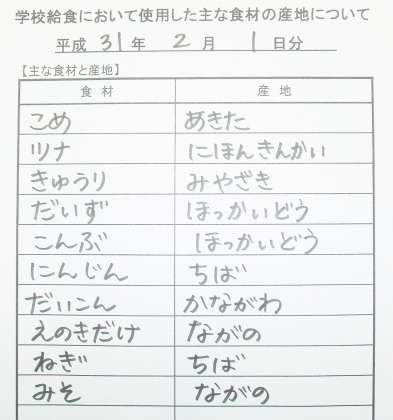 学校給食において使用した主な食材の産地について
平成 31 年 2 月 1 日分
【主な食材と産地】
食材 産地
こめ あきた
ツナ にほんきんかい
きゅうり みやざき
だいず ほっかいどう
こんぶ ほっかいどう
にんじん ちば
だいこん かながわ
えのきだけ ながの
ねぎ ちば
みそ ながの